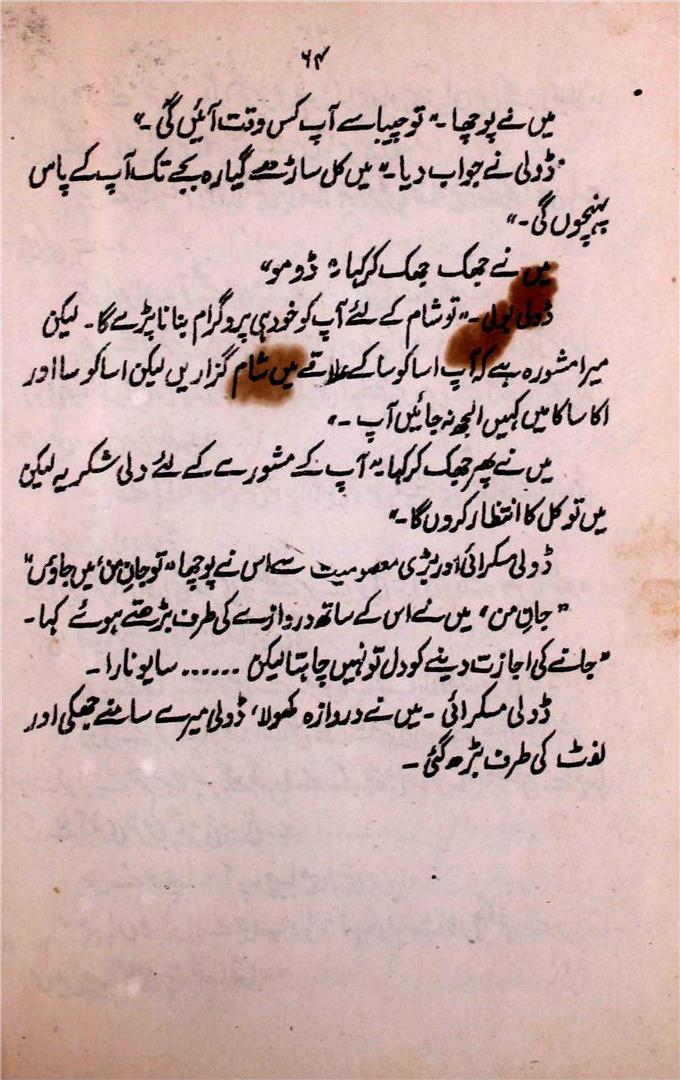 ۶۴
میں نے پوچھا۔" تو چیبا سے آپ کس وقت آئیں گی۔"
ڈولی نے جواب دیا۔" میں کل ساڑھے گیارہ بجے تک آپ کے پاس
پہنچوں گی۔"
میں نے جھک جھک کر کہا " ڈومو"
ڈولی بولی۔" تو شام کے لئے آپ کو خود ہی پروگرام بنانا پڑے گا۔ لیکن
میرا مشورہ ہے کہ آپ اساکوسا کے علاقے میں شام گزاریں لیکن اساکوسا اور
اکاساکا میں کہیں الجھ نہ جائیں آپ۔"
میں نے پھر جھک کر کہا " آپ کے مشورے کے لئے دلی شکریہ لیکن
میں تو کل کا انتظار کروں گا۔"
ڈولی مسکرائی اور بڑی معصومیت سے اس نے پوچھا " تو جانِ من، میں جاؤں"
"جانِ من، میں نے اس کے ساتھ دروازے کی طرف بڑھتے ہوئے کہا۔
"جانے کی اجازت دینے کو دل تو نہیں چاہتا لیکن ...... سایونارا۔
ڈولی مسکرائی۔ میں نے دروازہ کھولا، ڈولی میرے سامنے جھکی اور
لفٹ کی طرف بڑھ گئی۔